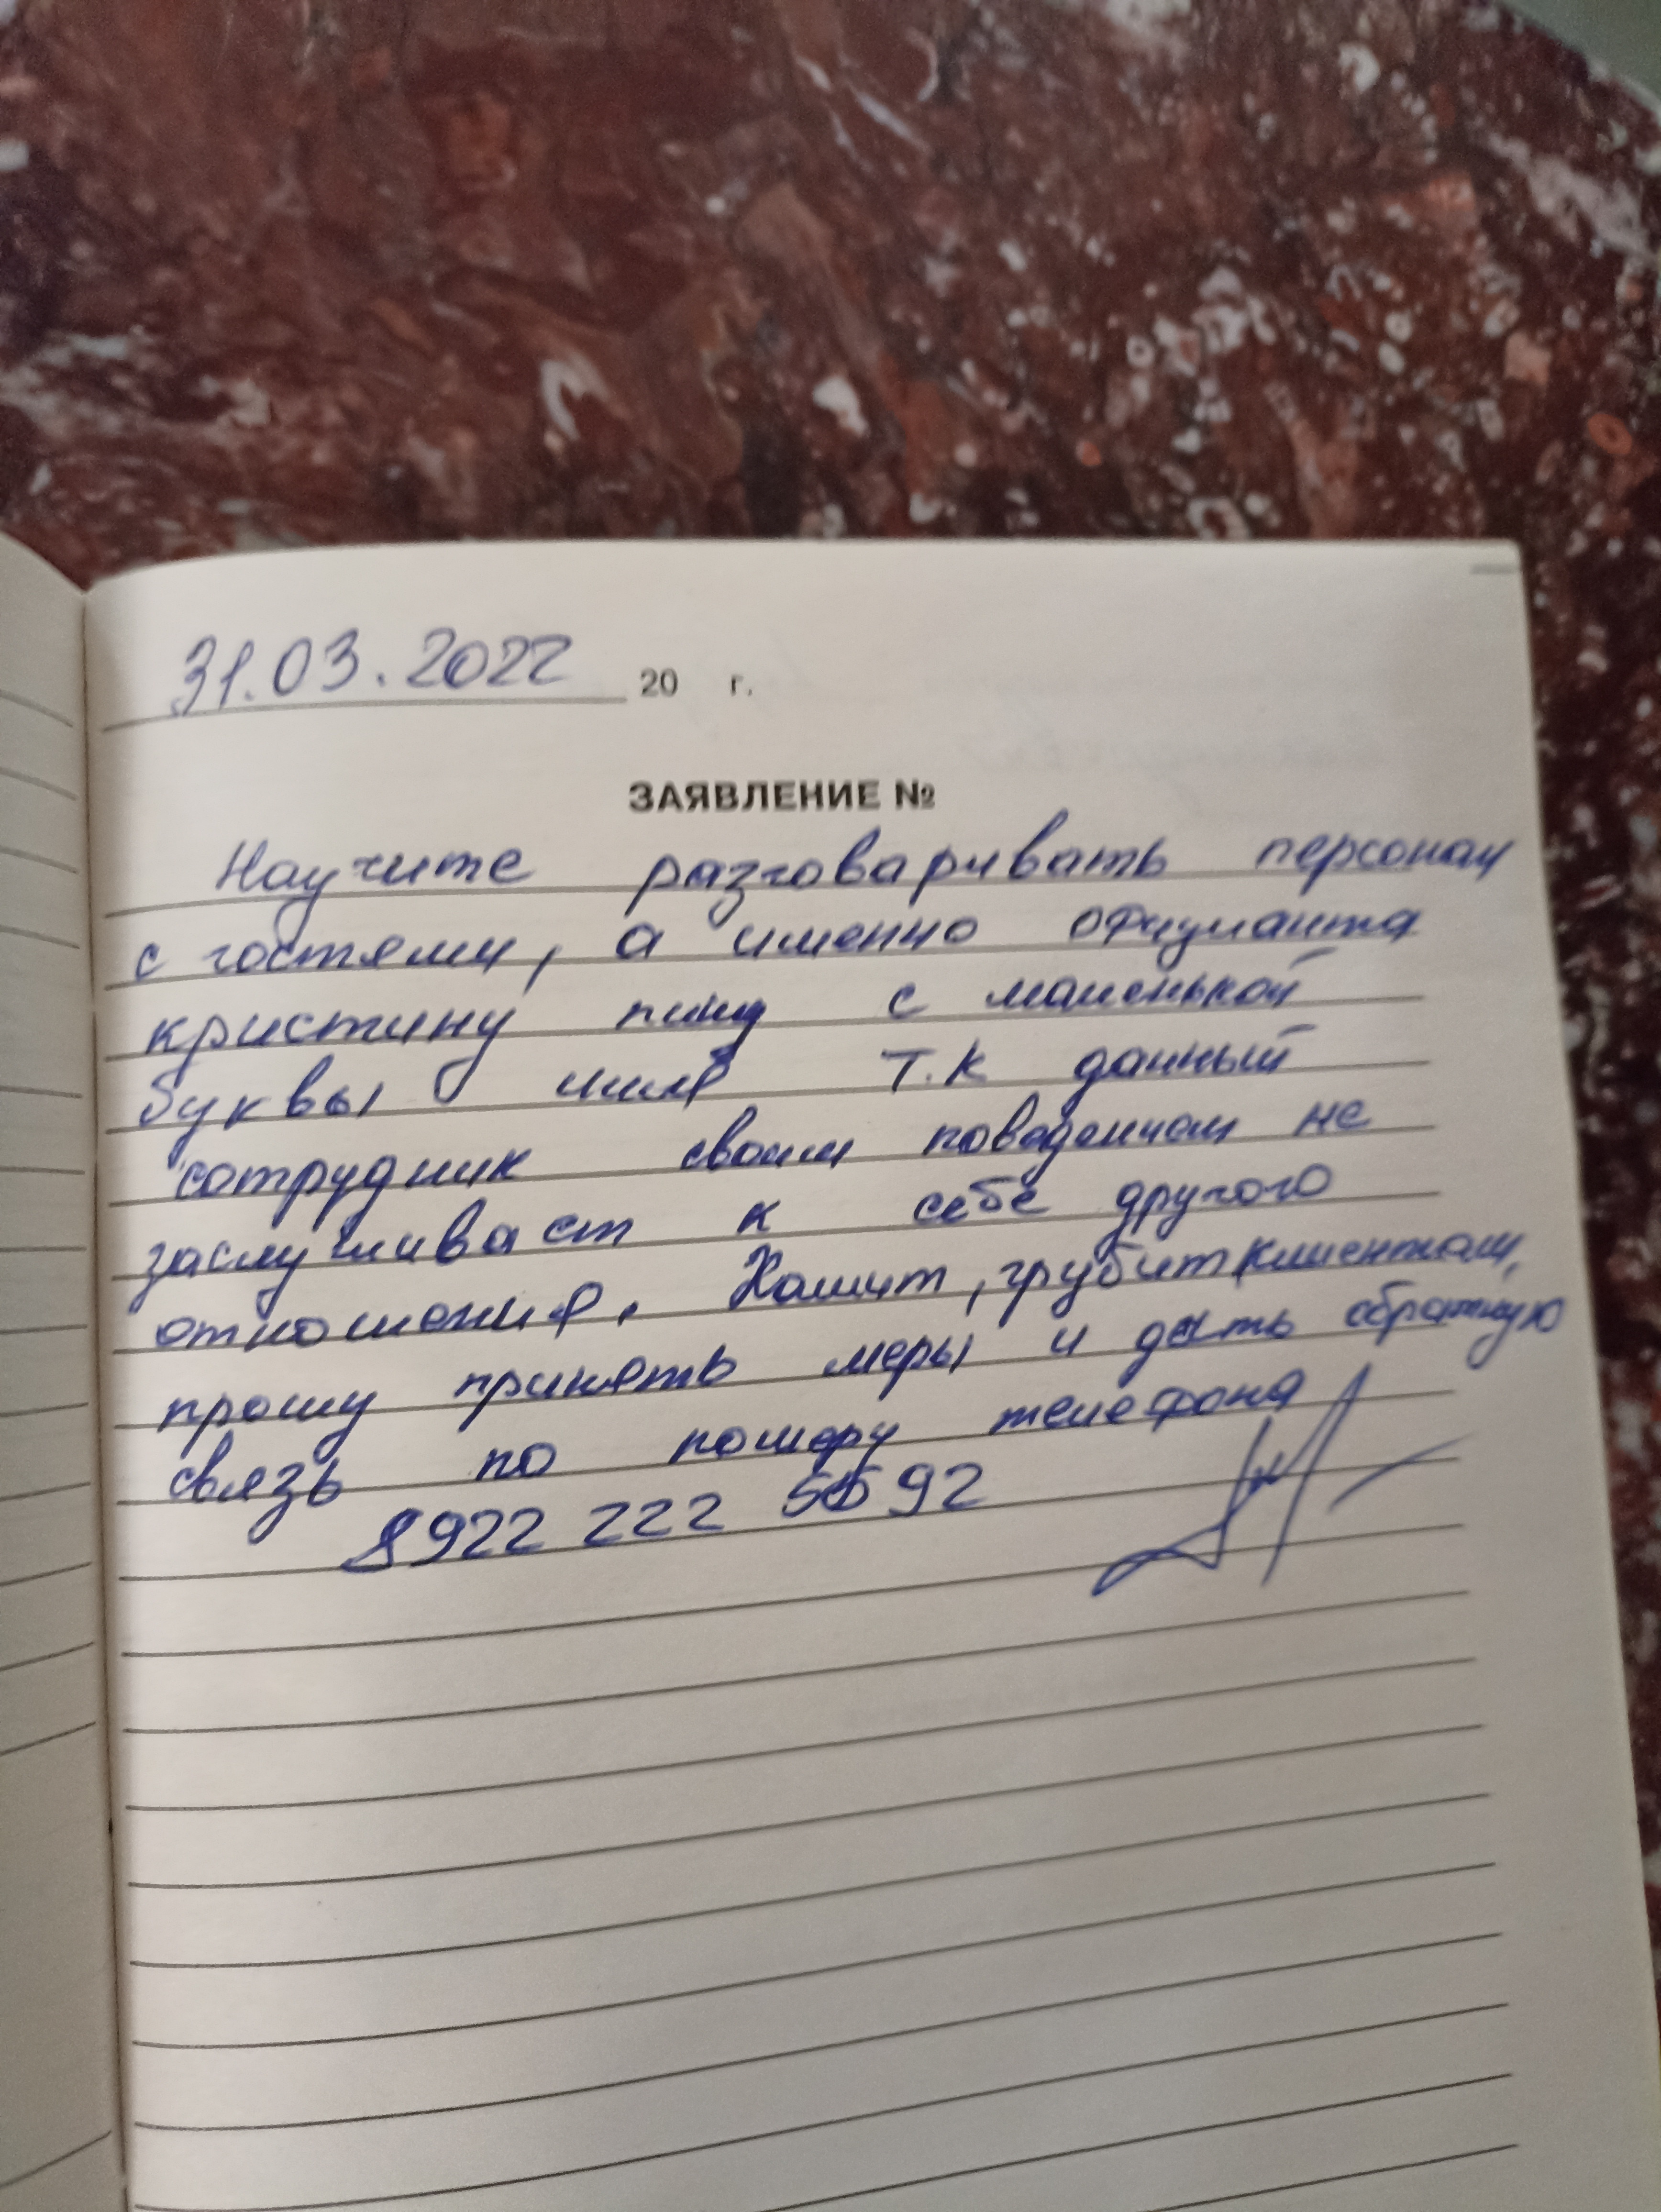 31.03.2022 20 г.
ЗАЯВЛЕНИЕ №
Научите разговаривать персонал
с гостями, а именно официанта
кристину пишу с маленькой
буквы имя т.к данный
сотрудник своим поведением не
заслуживает к себе другого
отношения. Хамит, грубит клиентам,
прошу принять меры и дать обратную
связь по номеру телефона
8922 222 5592